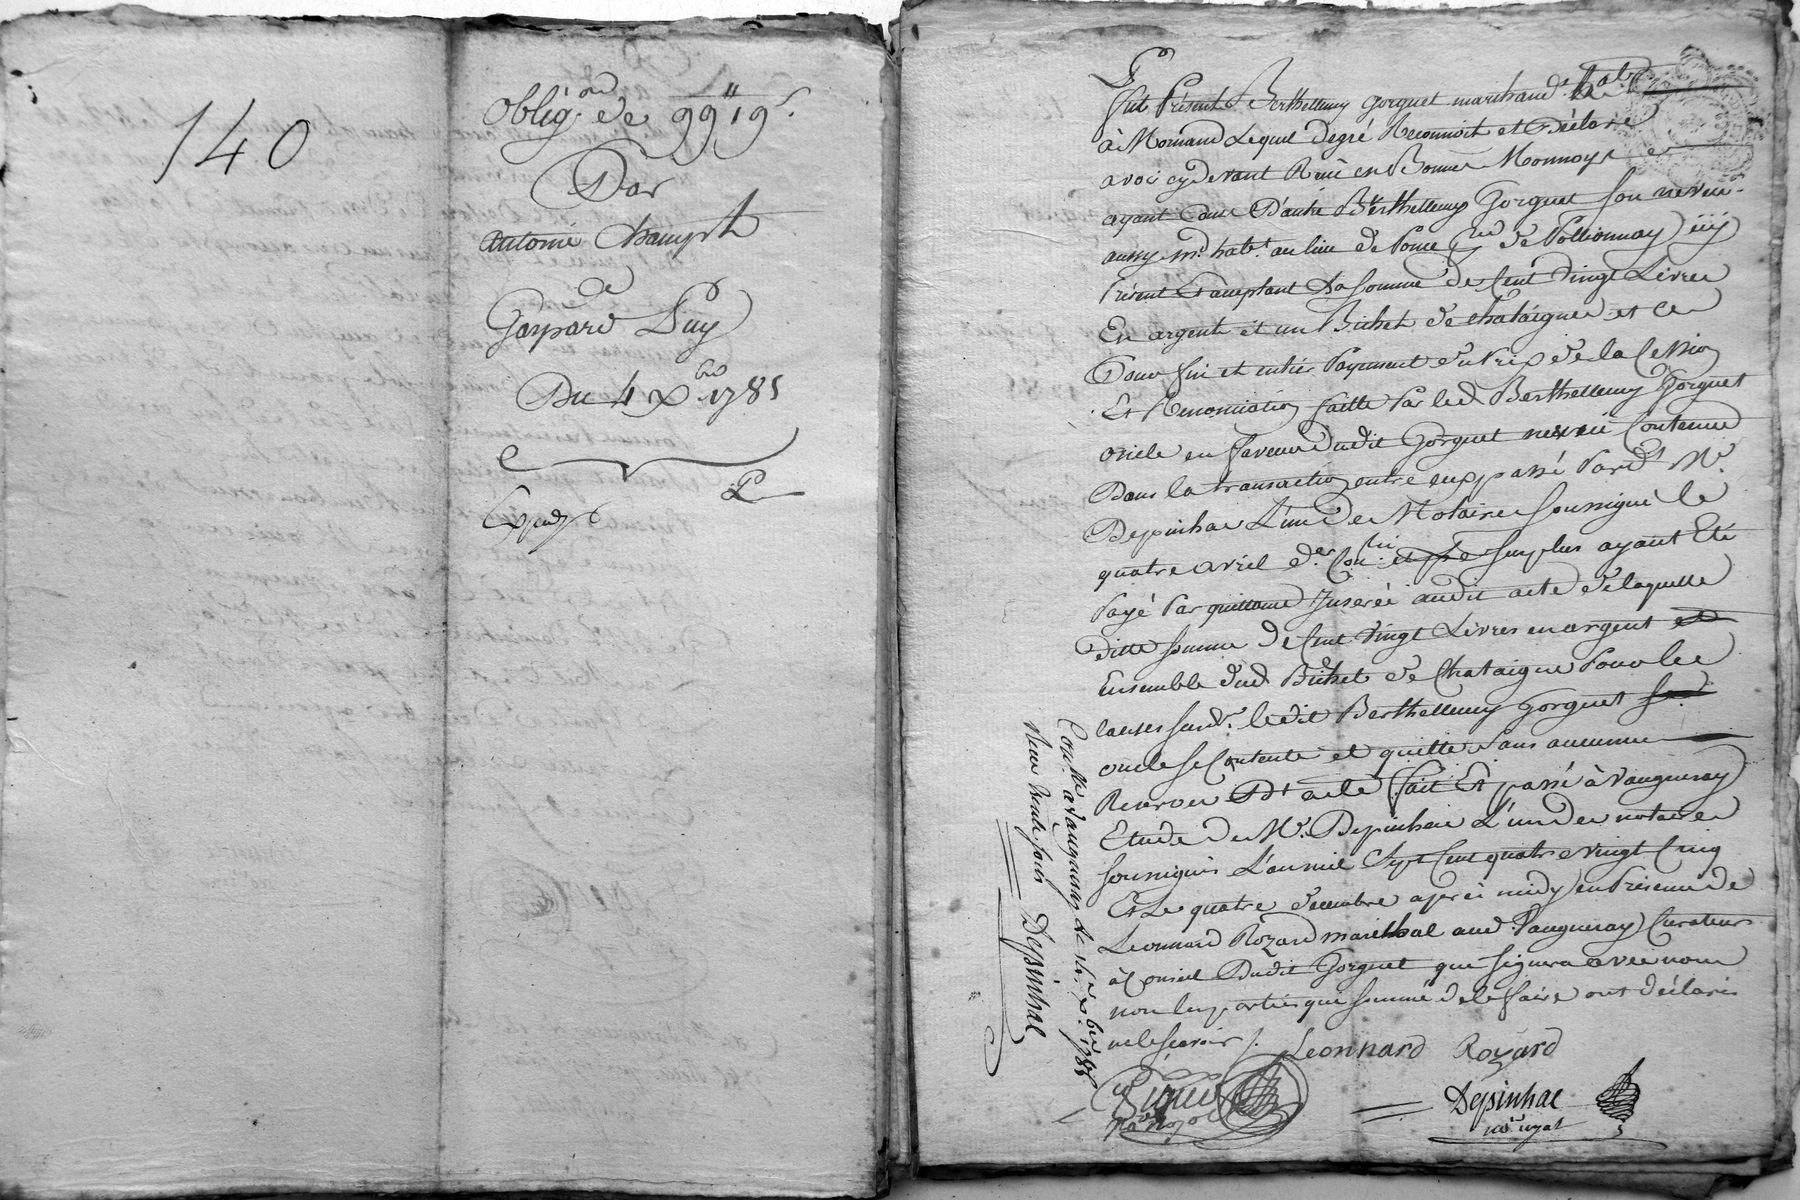 140
Oblig.on de 99lt 19s
Par
antoine Champt
a
Gaspard Puy
Du 4 Xbre 1785
Exped
Fut Présent Berthellemy gorguet marchand habt
à Mornand Lequel degré Reconnoit et Déclare
avoir cydevant Reçu en Bonne Monnoye
ayant Cour D'autre Berthellemy Gorguet son neveu
aussy md habt au lieu de de Pollionnay icy
Présent Et acceptant La somme de Cent vingt Livres
En argent et un Bichet de chataignes et ce
Pour fin et entier Payement du Prix de la Cession
Et Renonciation faitte Par led Berthellemy Gorguet
oncle en faveur dudit Gorguet neveu Contenue
Dans la transaction entre eux passé Pard Me
Depinhac L'un des Notaires soussigné le
quatre avril der surplus ayant Eté
Payé Par quittance Inserée audit acte de laquelle
ditte somme de Cent vingt Livres en argent et
Ensemble dud Bichet de Chataigne Pour les
causes susd. ledit Berthellemy Gorguet
oncle se Contente et quitte sans aucune
Reserves Dt acte fait Et passé à Vaugneray
Etude de Me Depinhac L'un des notaires
soussignés L'an mil Sept Cent quatre vingt Cinq
Et Le quatre decembre après midy en Présence de
Leonnard Rozard marechal aud Vaugneray Curateur
à Conseil Dudit Gorguet qui signera avec nous
non les parties qui sommé de le faire ont déclaré
ne le scavoir /.
Leonnard Rozard
nore Royal
Depinhac
nore royal
Con.llé à Vaugneray le Xbre 1785
Reçu trente sols Depinhac